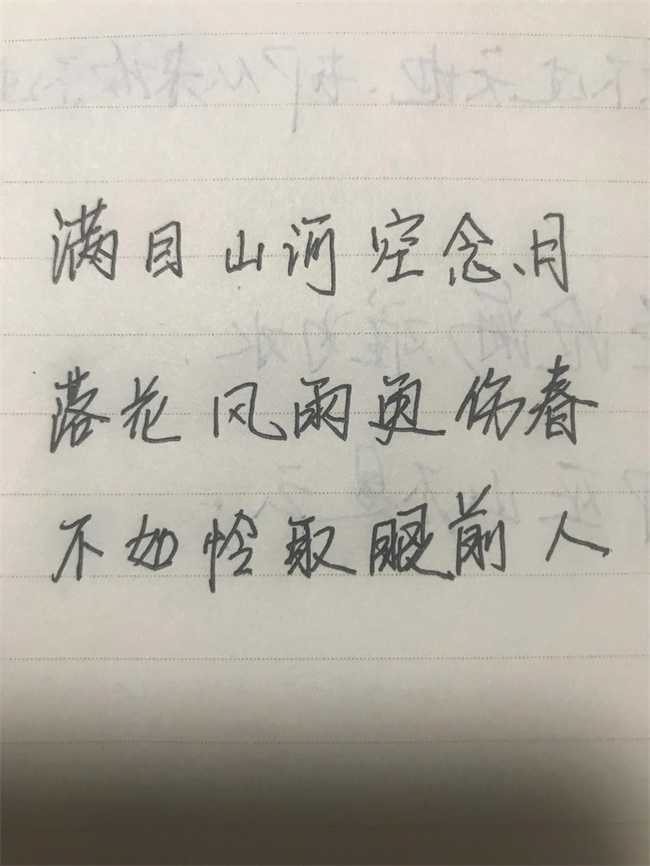 满目山河空念月
落花风雨更伤春
不如怜取眼前人